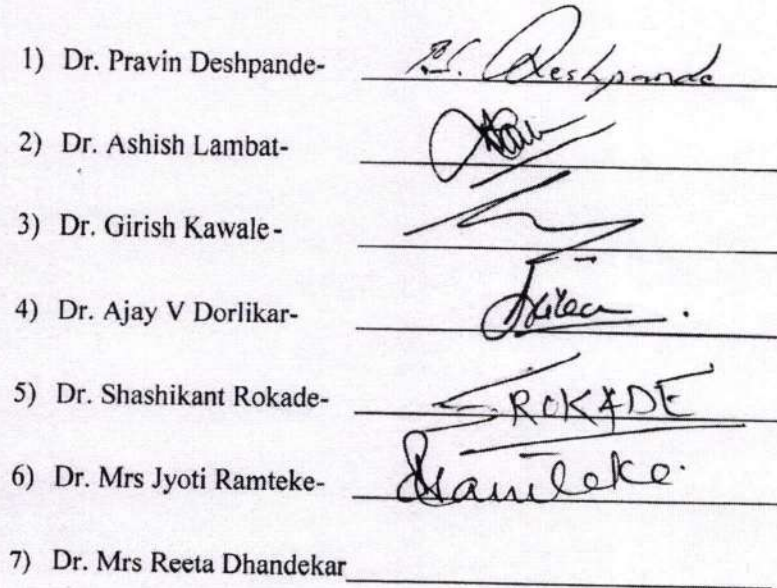 1) Dr. Pravin Deshpande- P.S. Deshpande
2) Dr. Ashish Lambat-
3) Dr. Girish Kawale-
4) Dr. Ajay V Dorlikar-
5) Dr. Shashikant Rokade- SROKADE
6) Dr. Mrs Jyoti Ramteke- Ramteke
7) Dr. Mrs Reeta Dhandekar